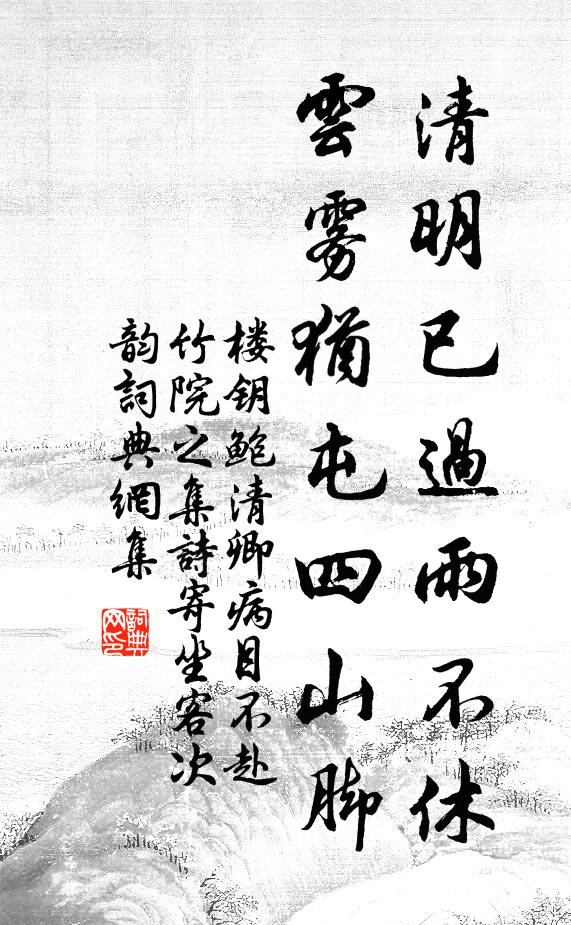 清明已過雨不休
雲雾猶屯四山脚
楼钥鲍清卿病目不赴
竹院之集詩寄坐客次
韵詞典網集
詞典
网印